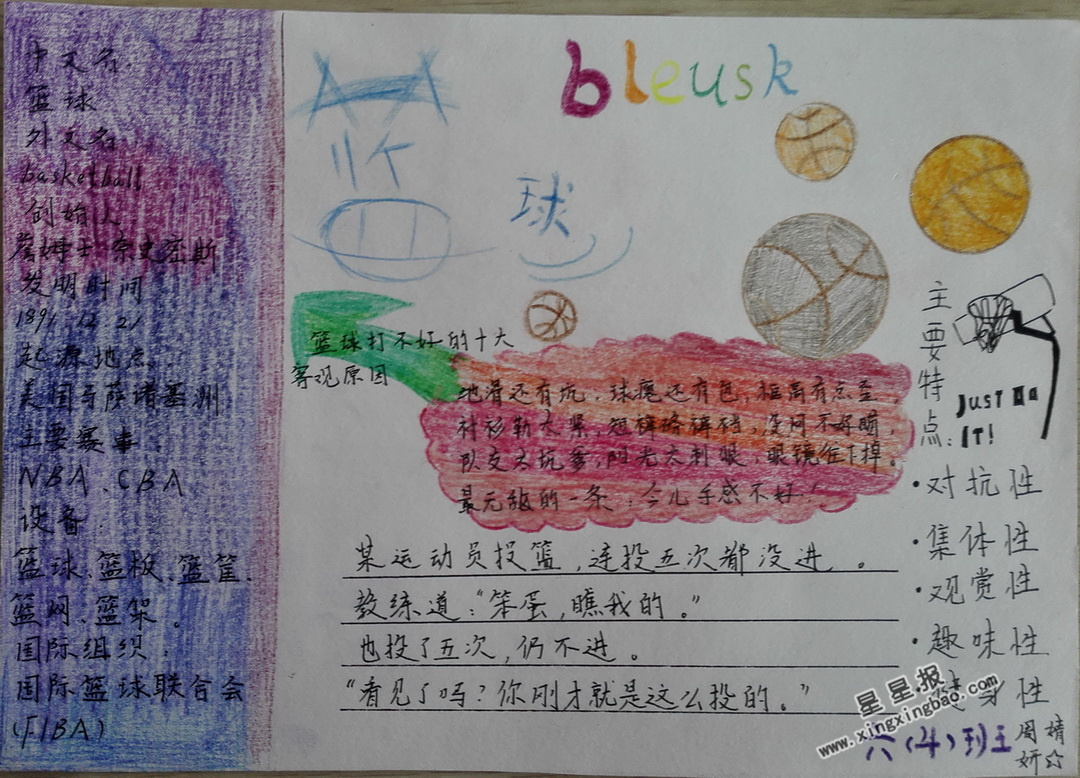 中文名:
篮球
外文名
basketball
创始人
詹姆士·奈史密斯
发明时间
1891.12.21
起源地点:
美国马萨诸塞州
主要赛事
NBA、CBA
设备:
篮球、篮板、篮筐、
篮网、篮架。
国际组织:
国际篮球联合会
(FIBA)
bleusk
篮
球
篮球打不好的十大
客观原因
地滑还有坑,球瘪还有包,框高有点歪,
衬衫勒太紧,短裤咯裤裆,
队友太坑爹,阳光太刺眼,眼镜往下掉。
最无敌的一条:今儿手感不好!
某运动员投篮,连投五次都没进。
教练道:“笨蛋,瞧我的。”
也投了五次,仍不进。
“看见了吗?你刚才就是这么投的。”
主要特点:
JUST Do
IT!
·对抗性
·集体性
·观赏性
·趣味性
身性
星星报
www.xingxingbao.com
六(4)班
周婧妍☆